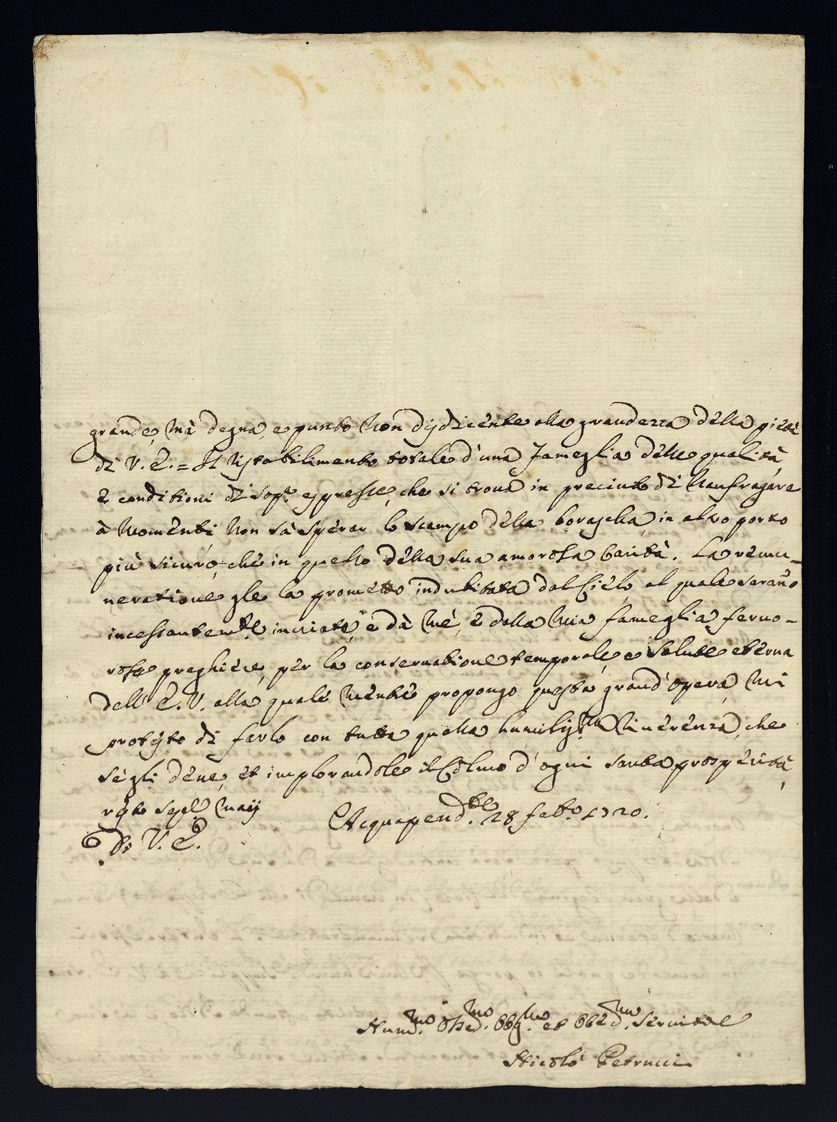 grande, mà degna, e punto non disdicente alla grandezza della pietà
di V. E. = Il ristabilimento totale d'una fameglia delle qualità
e conditioni di sop.ᵃ espresse, che si trova in precinto di naufragare
à momenti non sà sperar lo scampo della borascha in altro porto
più sicuro, che in quello della sua amorosa carità. La remu-
neratione gle la prometto indubitata dal Cielo al quale saran̄o
incessantem.ᵗᵉ inviate, e dà mé, e dalla mia fameglia fervo-
rose preghiere, per la conservatione temporale, e salute eterna
dell' E. V. alla quale mentre propongo questa grand'opera, mi
protesto di farlo con tutta quella humiliss.ᵐᵃ riverenza, che
segli deve, et implorandole il Colmo d'ogni santa prosperità,
resto
Di V. E. Acquapend.ᵗᵉ 28 feb.ᵒ 1720.
Hum.ᵐᵒ Dev.ᵐᵒ Obg.ᵐᵒ et Obed.ᵐᵒ Servitore
Nicolò Petrucci